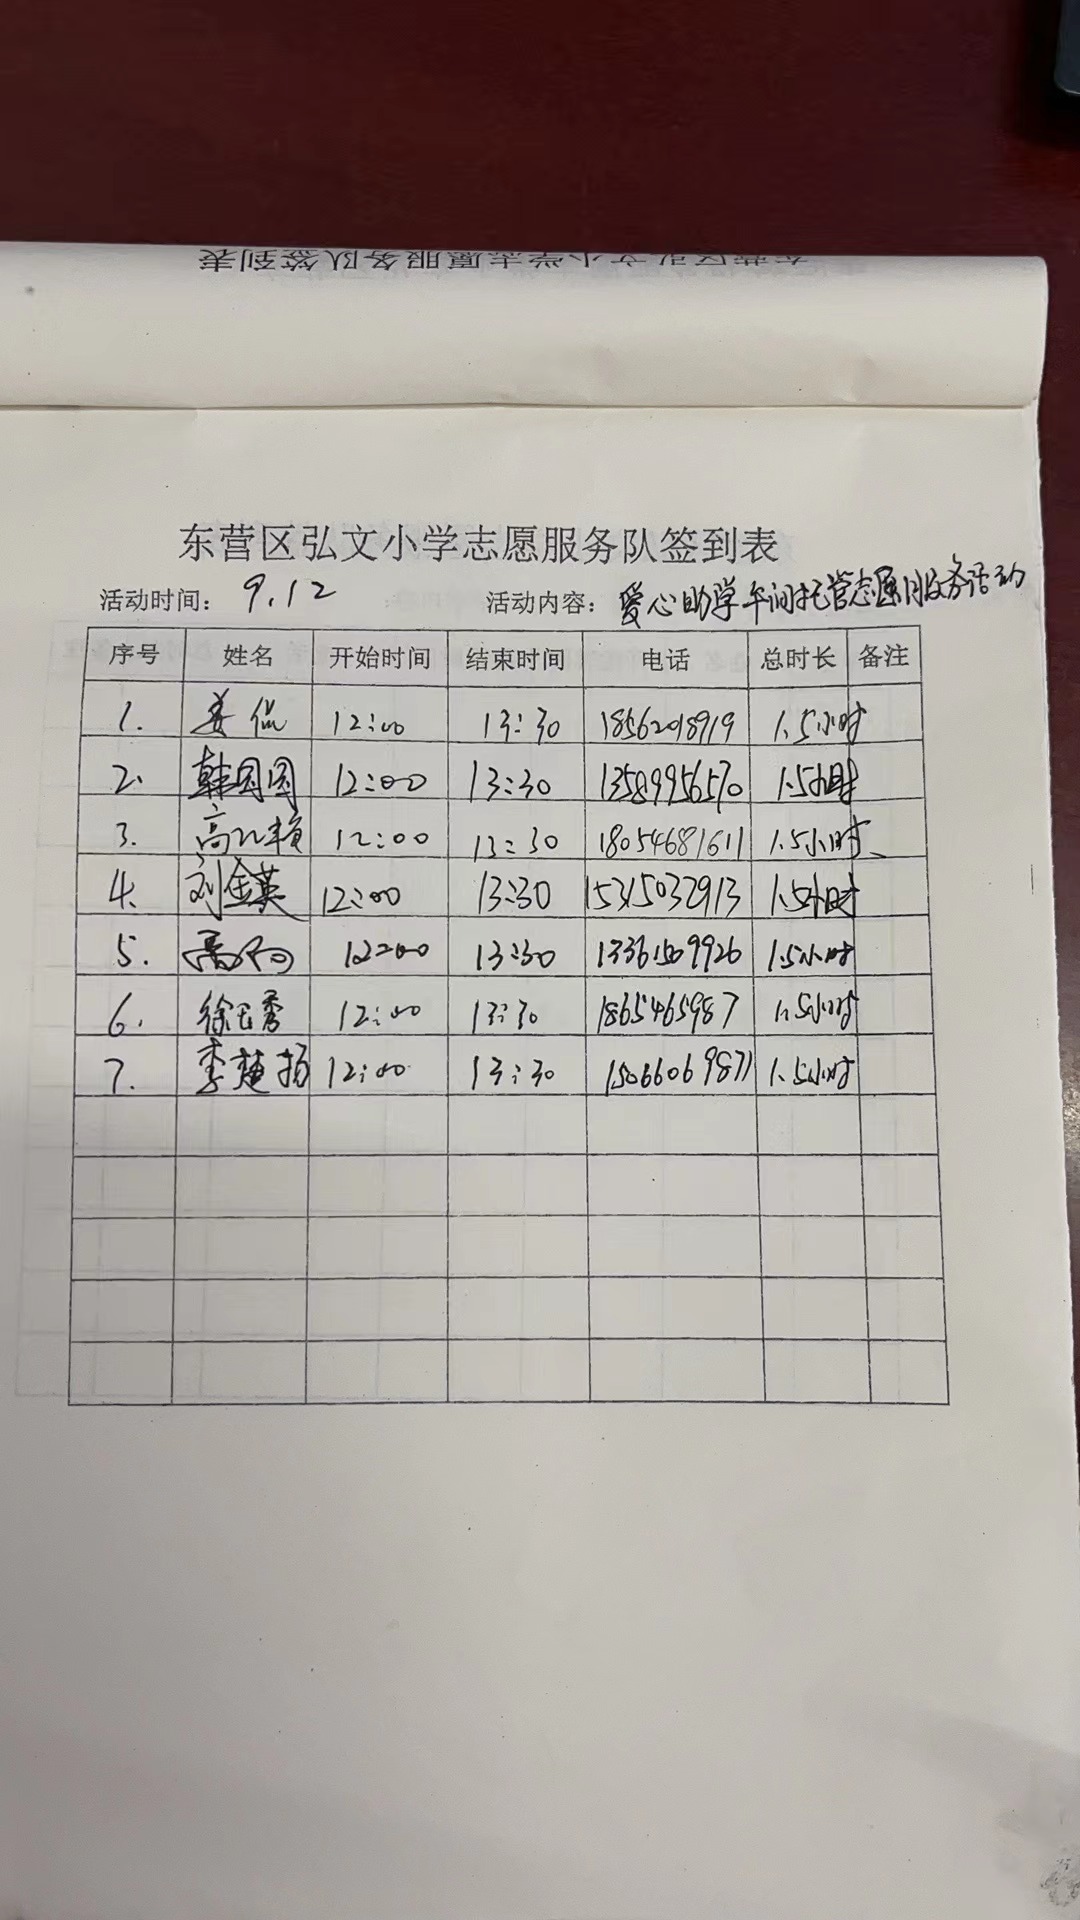 东营区弘文小学志愿服务队签到表
东营区弘文小学志愿服务队签到表
活动时间: 9.12 活动内容: 爱心助学午间托管志愿服务活动
序号 姓名 开始时间 结束时间 电话 总时长 备注
1. 姜侃 12:00 13:30 18562018919 1.5小时
2. 韩园园 12:00 13:30 13589956570 1.5小时
3. 高 12:00 13:30 18054681611 1.5小时
4. 刘金英 12:00 13:30 15315032913 1.5小时
5. 12:00 13:30 13361509926 1.5小时
6. 徐玉秀 12:00 13:30 1865465987 1.5小时
7. 李楚扬 12:00 13:30 15066069871 1.5小时